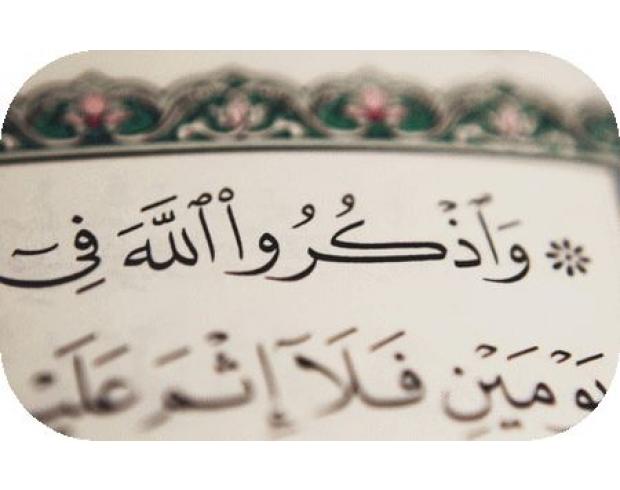 ۞ وَٱذۡكُرُواْ ٱللَّهَ فِيٓ
يَوۡمَيۡنِ فَلَآ إِثۡمَ